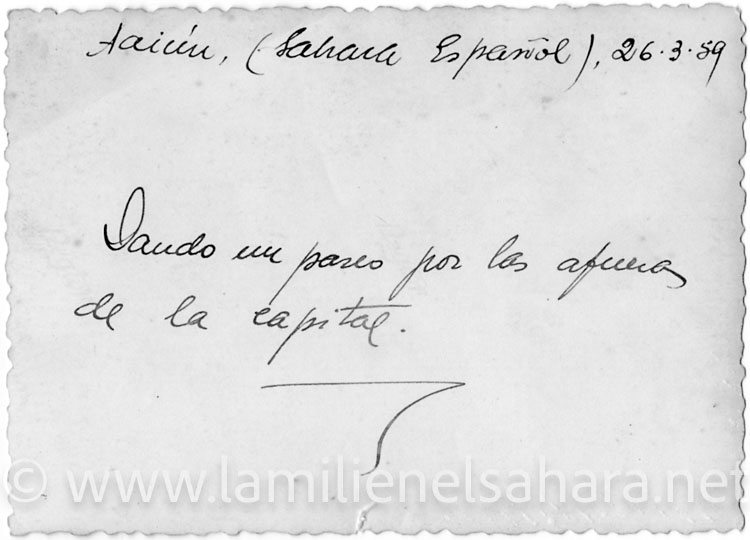 Aaiún, (Sahara Español), 26.3.59
Dando un paseo por las afueras
de la capital.
© www.lamilienelsahara.net